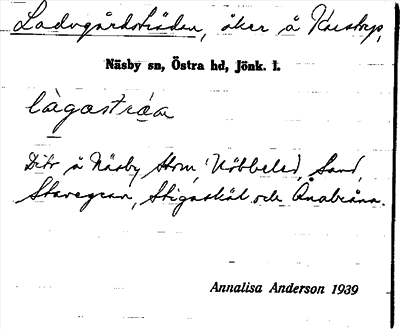 Ladugårdsträdan, åker å Karstorp,
Näsby sn, Östra hd, Jönk. l.
làgastráa
Dito å Näsby Storn, Nöbbeled, Sand,
Stavegram, Stigaskäl och Ånabråna.
Annalisa Anderson 1939